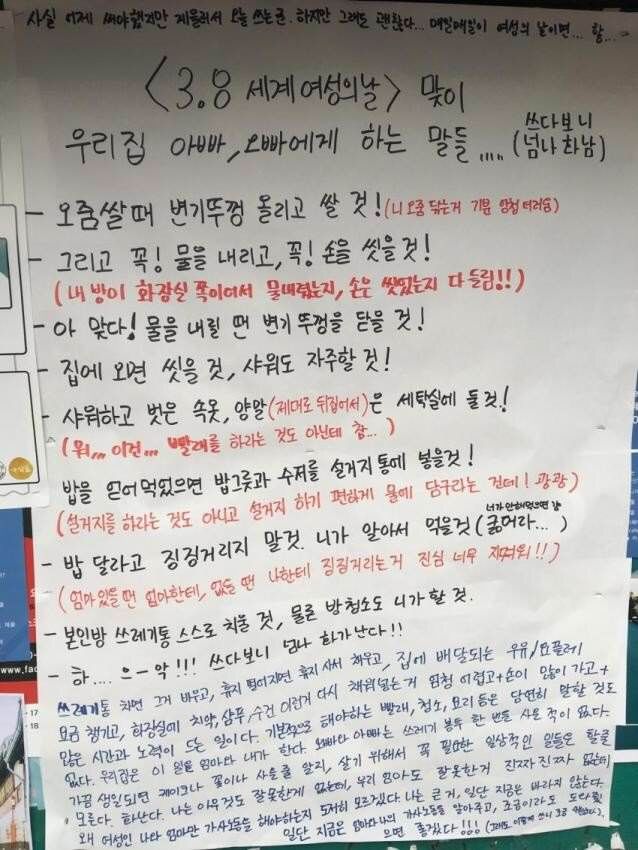 사실 어제 써야했지만 게을러서 오늘 쓰는군. 하지만 그래도 괜찮다... 매일매일이 여성의 날이면... 핳...
<3.8 세계 여성의날> 맞이
우리집 아빠, 오빠에게 하는 말들.... (쓰다보니 넘나 화남)
- 오줌쌀 때 변기뚜껑 올리고 쌀 것! (니 오줌 닦는거 기분 엄청 더러움)
- 그리고 꼭! 물을 내리고, 꼭! 손을 씻을것!
(내 방이 화장실 쪽이어서 물내렸는지, 손은 씻었는지 다 들림!!)
- 아 맞다! 물을 내릴 땐 변기 뚜껑을 닫을 것!
- 집에 오면 씻을 것, 샤워도 자주할 것!
- 샤워하고 벗은 속옷, 양말(제대로 뒤집어서)은 세탁실에 둘것!
(뭐,,, 이건,,, 빨래를 하라는 것도 아닌데 참...)
밥을 얻어먹었으면 밥그릇과 수저를 설거지통에 넣을것!
(설거지를 하라는 것도 아니고 설거지 하기 편하게 물에 담구라는 건데! 광광)
- 밥 달라고 징징거리지 말것. 니가 알아서 먹을것 (너가 안해먹으면 걍 굶어라...)
(엄마 있을때 엄마한테, 없을 땐 나한테 징징거리는거 진심 너무 지겨워!!)
- 본인방 쓰레기통 스스로 치울 것, 물론 방청소도 니가 할 것.
- 하.... 으-악!!! 쓰다보니 넘나 화가난다!!
쓰레기통 차면 그거 비우고, 휴지 떨어지면 휴지 사서 채우고, 집에 배달되는 우유/요플레
요금 챙기고, 화장실에 치약, 샴푸, 수건 이런거 다시 채워넣는거 엄청 어렵고+손이 많이 가고+
많은 시간과 노력이 드는 일이다. 기본적으로 해야하는 빨래, 청소, 요리 등은 당연히 말할 것도
없다. 우리집은 이 일을 엄마와 내가 한다. 오빠와 아빠는 쓰레기 봉투 한 번을 사온 적이 없다.
가끔 생일되면 케이크나 꽃이나 사올줄 알지, 살기 위해서 꼭 필요한 일상적인 일들은 할줄
모른다. 화난다. 나는 아무것도 잘못한게 없는데, 우리 엄마도 잘못한거 진짜 진짜 없는데,
왜 여성인 나와 엄마만 가사노동을 해야하는지 도저히 모르겠다. 나는 큰 거, 일단 지금은 바라지 않는다.
일단 지금은 엄마와 나의 가사노동을 알아주고, 조금이라도 도와줬
으면 좋겠다!!!